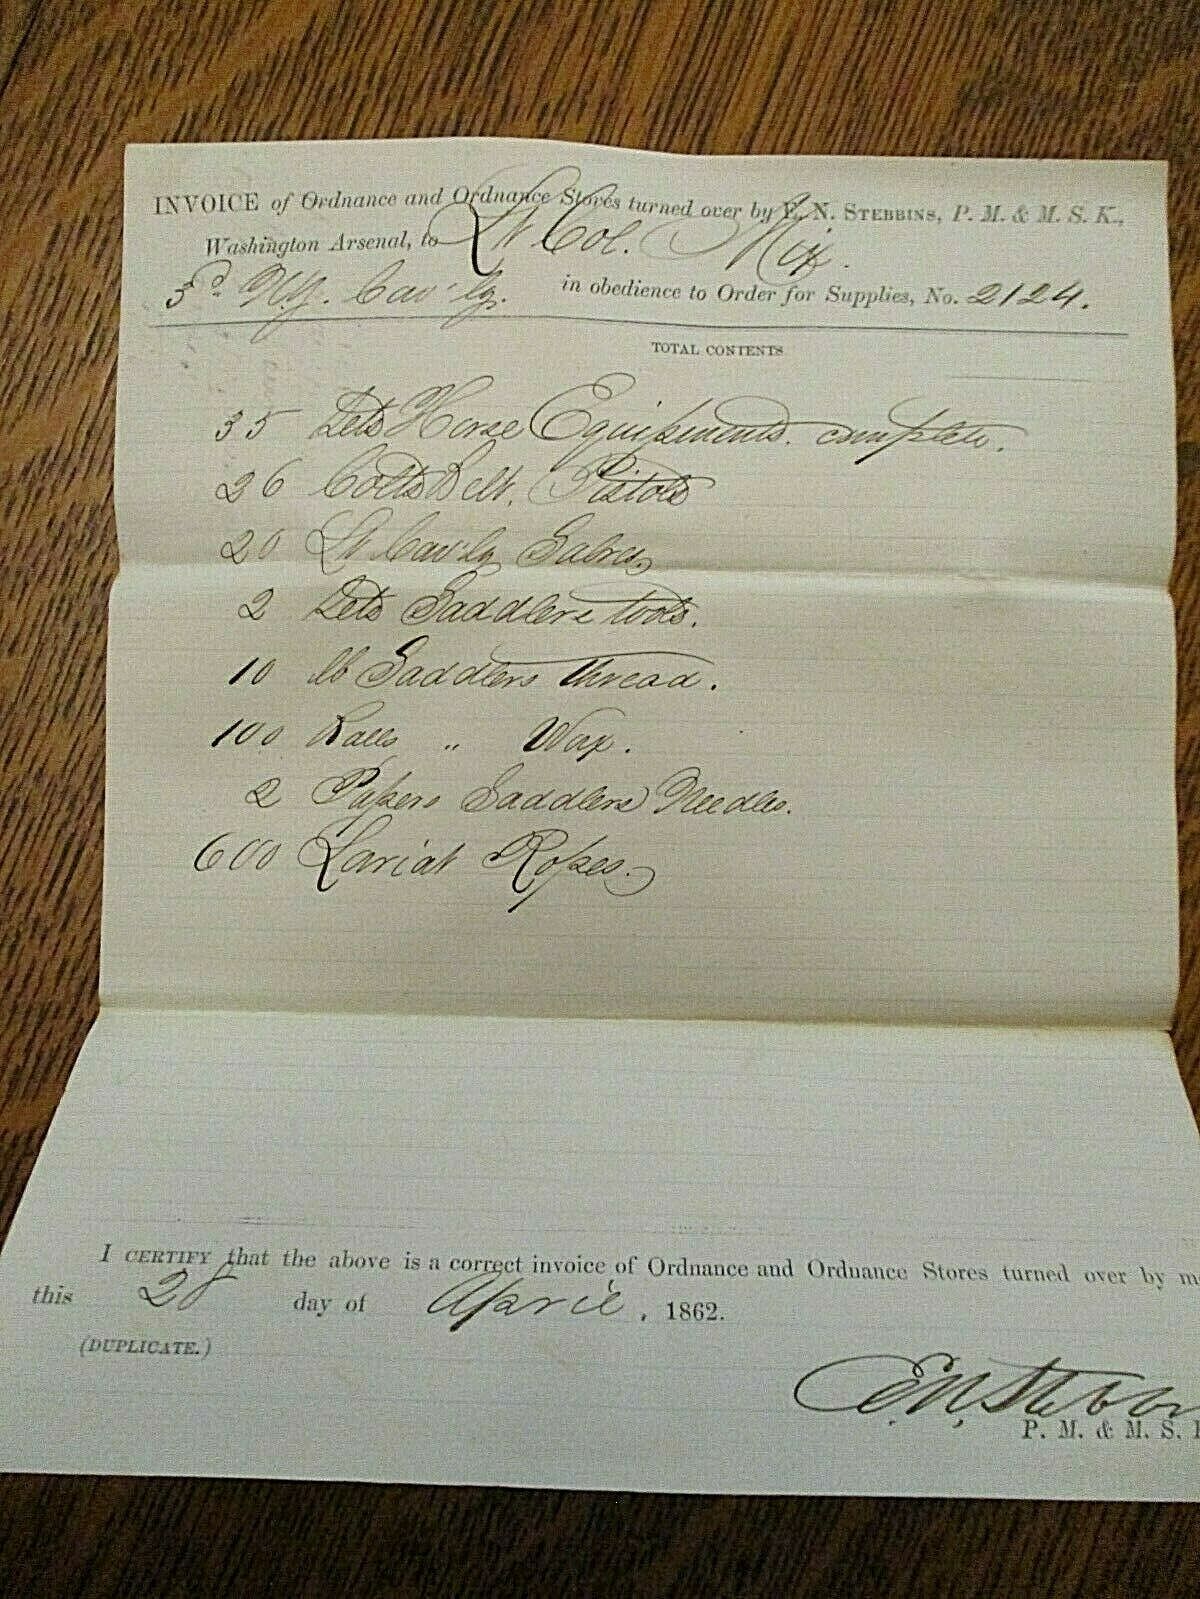 INVOICE of Ordnance and Ordnance Stores turned over by E. N. STEBBINS, P. M. & M. S. K.,
Washington Arsenal, to Lt Col. Mix.
3d NY. Cav'ly. in obedience to Order for Supplies, No. 2124.
TOTAL CONTENTS
35 Sets Horse Equipments. complete.
26 Colts Belt. Pistols
20 Lt Cav'ly Sabres
2 Sets Saddlers tools.
10 lb Saddlers thread.
100 Balls " Wax.
2 Papers Saddlers Needles.
600 Lariat Ropes.
I CERTIFY that the above is a correct invoice of Ordnance and Ordnance Stores turned over by m
this 28 day of April, 1862.
(DUPLICATE.)
E. N. Stebb
P. M. & M. S.